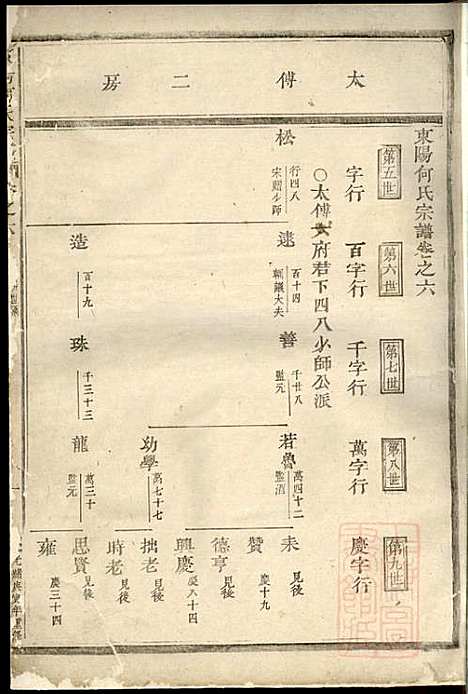 東陽何氏宗譜卷之六
太傅二房
第五世
字行
第六世
百字行
第七世
千字行
第八世
萬字行
第九世
慶字行
○太傅文府君下四八少師公派
松
行四八
宋贈少師
逮
百十四
朝議大夫
造
百十九
善
千廿八
監元
珠
千三十三
若魯
萬四十二
監酒
幼學
萬七十七
龍
萬三十
監元
耒
見後
贊
慶十九
德亨
見後
興慶
慶八十四
拙老
見後
時老
見後
思賢
見後
雍
慶三十四